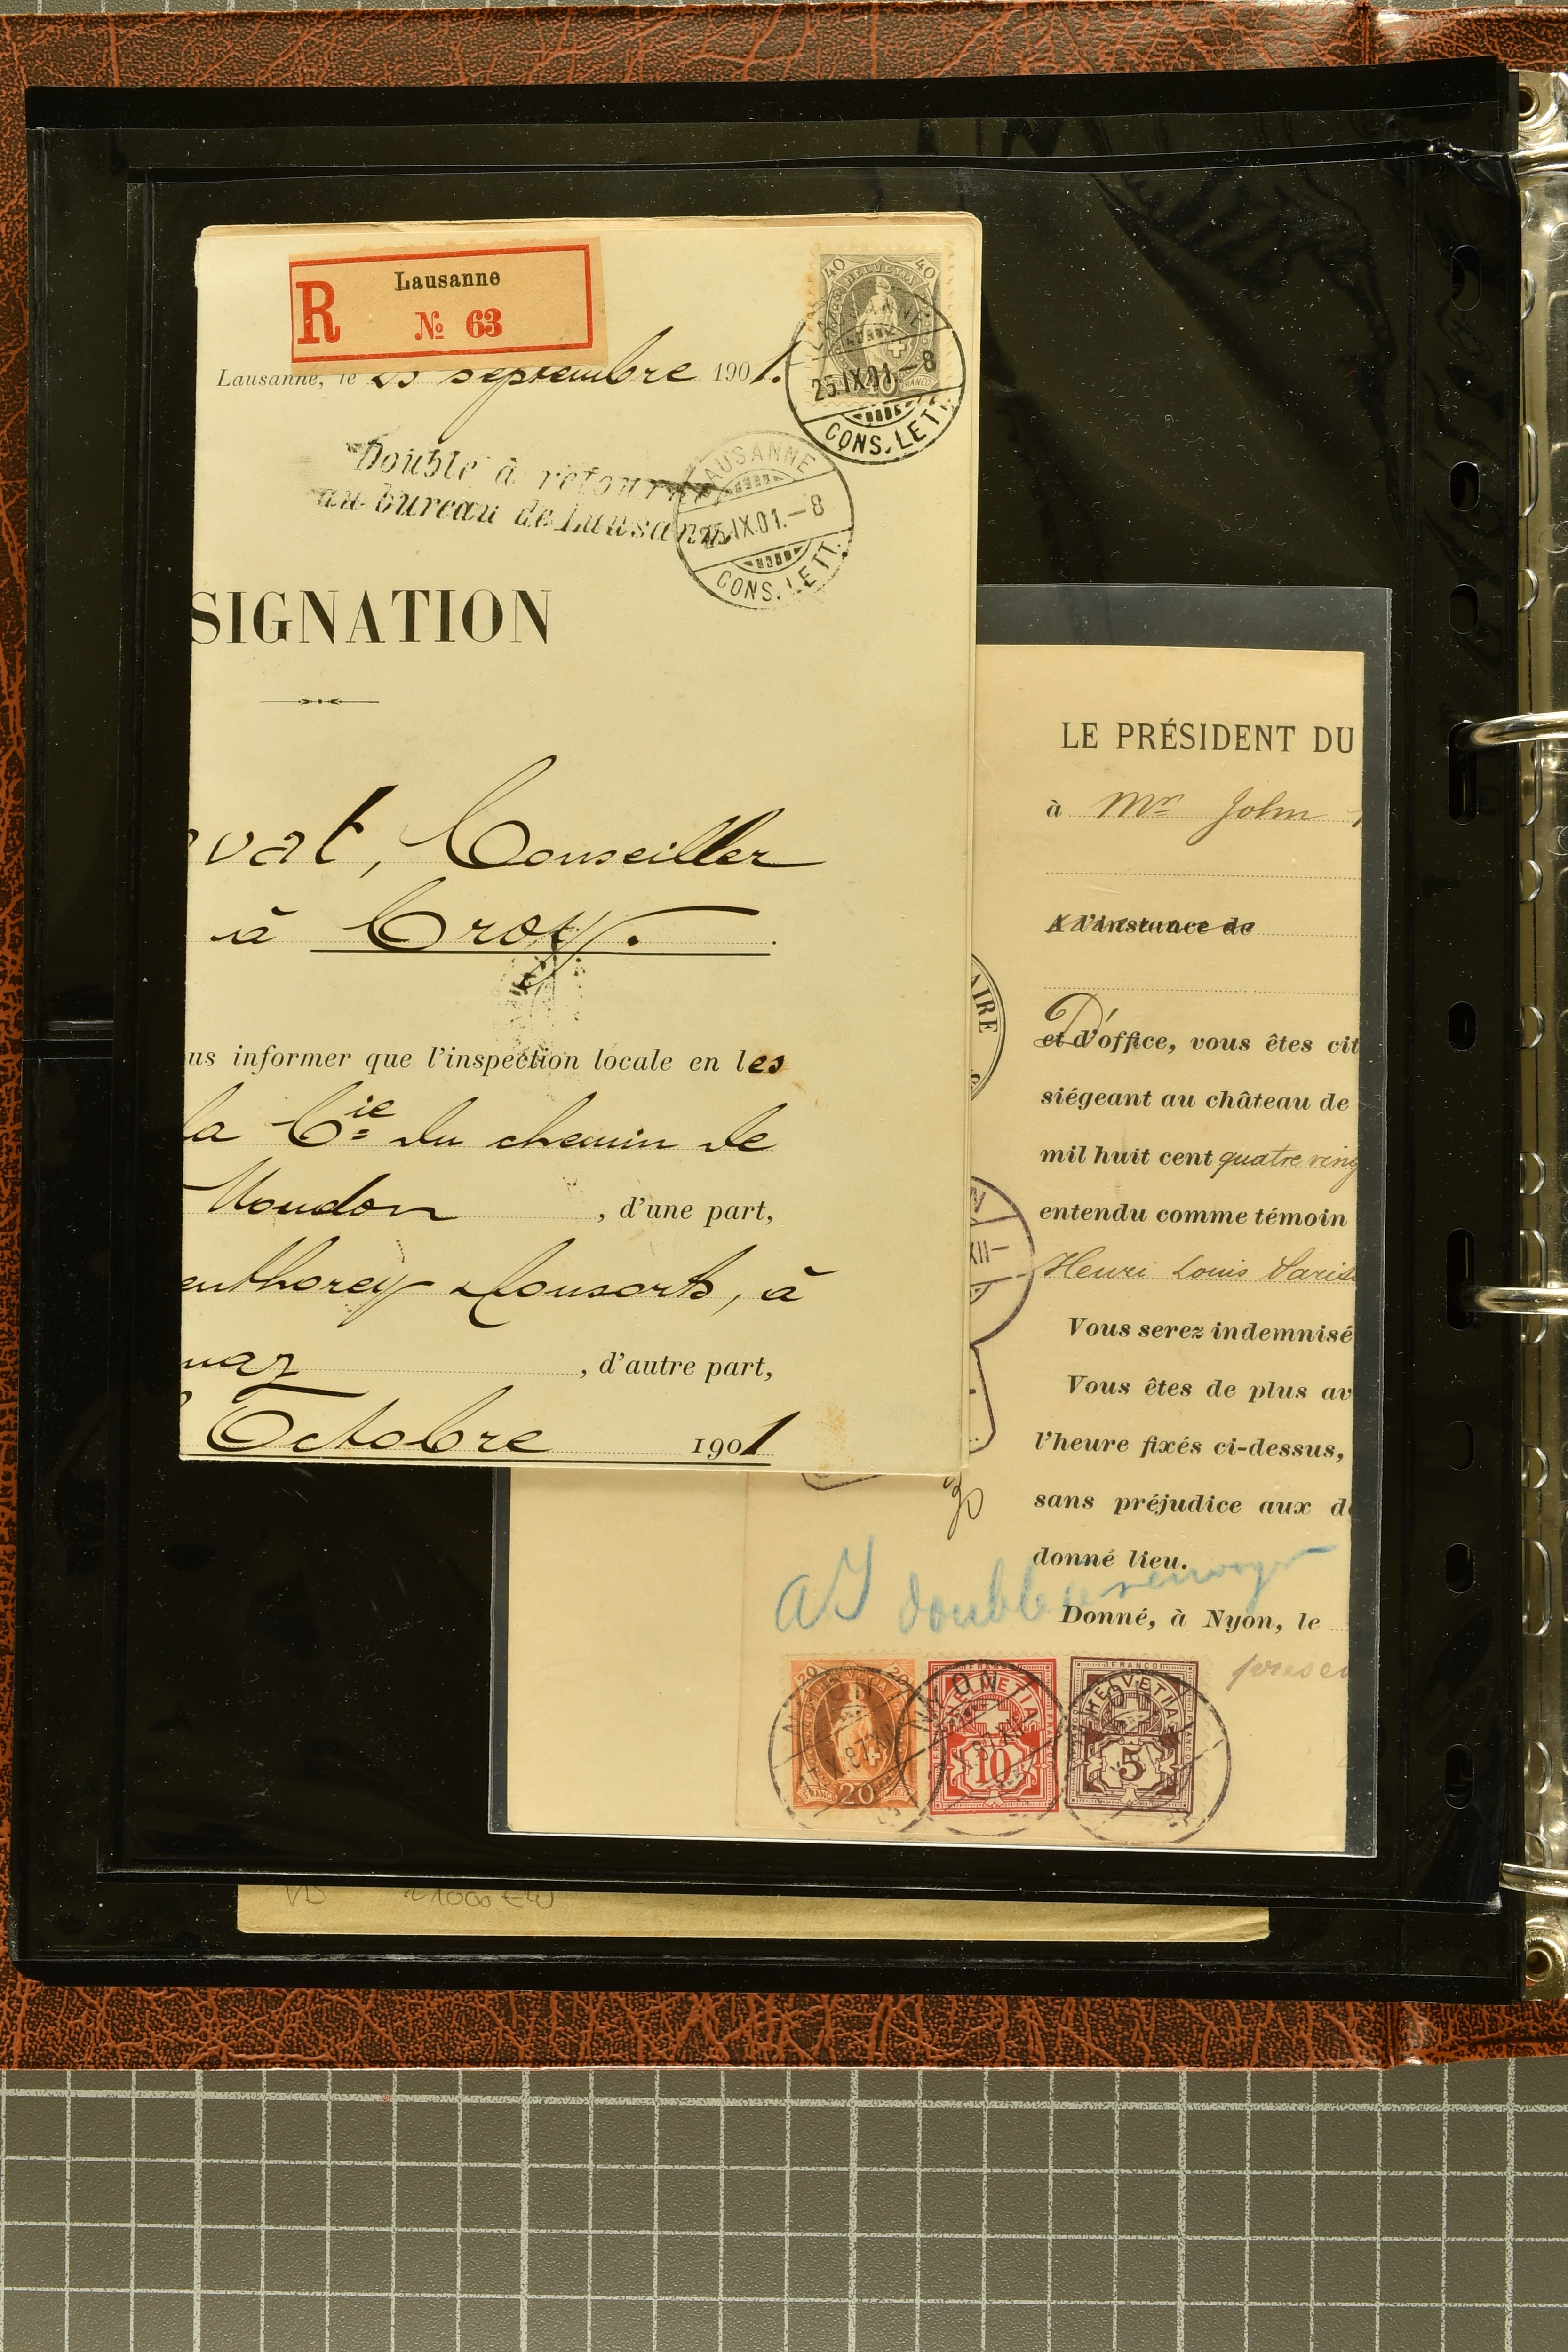 R
Lausanne
№ 63
40 40
HELVETIA
Lausanne, le 25 septembre 1901.
25.IX.01.-8
CONS. LETT.
Double à retourner
au bureau de Lausanne
LAUSANNE
25.IX.01.-8
CONS. LETT.
SIGNATION
vat, Conseiller
à Croy.
us informer que l'inspection locale en les
la Cie du chemin de
Moudon , d'une part,
enthorey & Consorts, à
uaz , d'autre part,
Octobre 1901
LE PRÉSIDENT DU
à Mr John
A l'instance de
AIRE
et D'office, vous êtes cit
siégeant au château de
mil huit cent quatre ving
entendu comme témoin
N
XII-
Henri Louis
Vous serez indemnisé
Vous êtes de plus av
l'heure fixés ci-dessus,
sans préjudice aux d
donné lieu.
double
Donné, à Nyon, le
20 20
HELVETIA
20
NYON
HELVETIA
10
FRANCO
HELVETIA
5